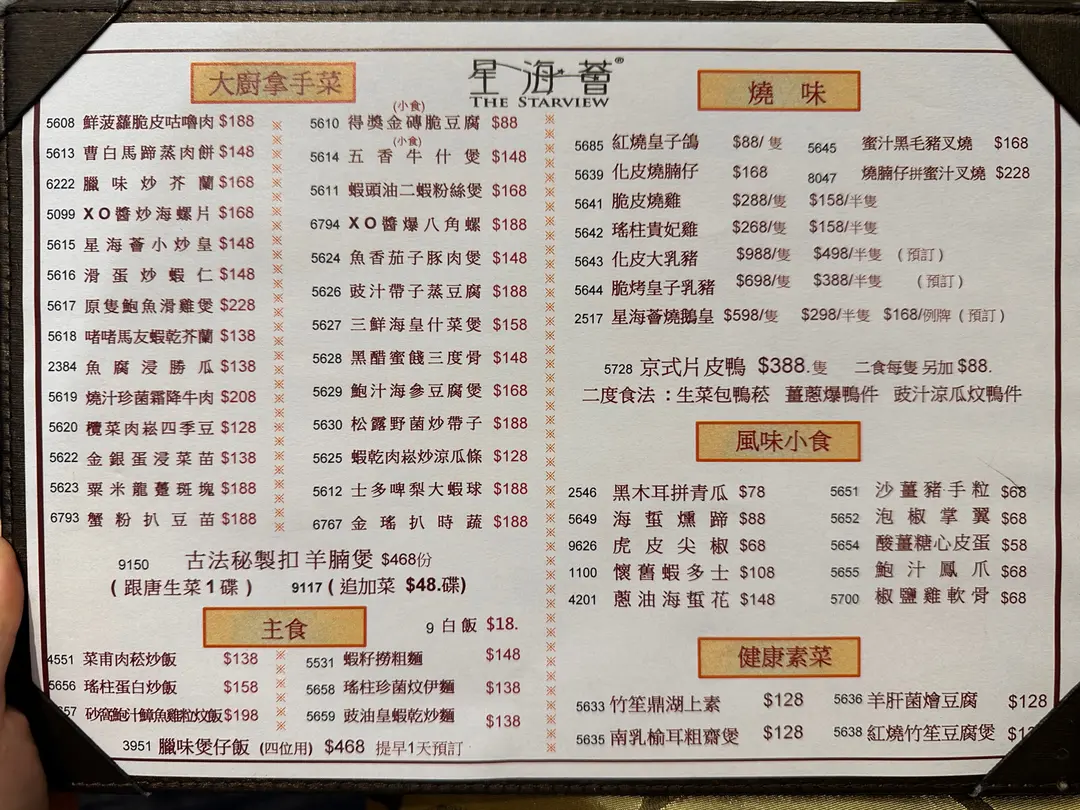 星海薈®
THE STARVIEW
大廚拿手菜
5608 鮮菠蘿脆皮咕嚕肉 $188
5613 曹白馬蹄蒸肉餅 $148
6222 臘味炒芥蘭 $168
5099 XO醬炒海螺片 $168
5615 星海薈小炒皇 $148
5616 滑蛋炒蝦仁 $148
5617 原隻鮑魚滑雞煲 $228
5618 啫啫馬友蝦乾芥蘭 $138
2384 魚腐浸勝瓜 $138
5619 燒汁珍菌霜降牛肉 $208
5620 欖菜肉崧四季豆 $128
5622 金銀蛋浸菜苗 $138
5623 粟米龍躉斑塊 $188
6793 蟹粉扒豆苗 $188
(小食)
5610 得獎金磚脆豆腐 $88
(小食)
5614 五香牛什煲 $148
5611 蝦頭油二蝦粉絲煲 $168
6794 XO醬爆八角螺 $188
5624 魚香茄子豚肉煲 $148
5626 豉汁帶子蒸豆腐 $188
5627 三鮮海皇什菜煲 $158
5628 黑醋蜜餞三度骨 $148
5629 鮑汁海參豆腐煲 $168
5630 松露野菌炒帶子 $188
5625 蝦乾肉崧炒涼瓜條 $128
5612 士多啤梨大蝦球 $188
6767 金瑤扒時蔬 $188
9150 古法秘製扣羊腩煲 $468份
(跟唐生菜1碟) 9117 (追加菜 $48.碟)
主食
9 白飯 $18.
4551 菜甫肉崧炒飯 $138
5656 瑤柱蛋白炒飯 $158
57 砂窩鮑汁鱆魚雞粒炆飯 $198
5531 蝦籽撈粗麵 $148
5658 瑤柱珍菌炆伊麵 $138
5659 豉油皇蝦乾炒麵 $138
3951 臘味煲仔飯 (四位用) $468 提早1天預訂
燒味
5685 紅燒皇子鴿 $88/隻 5645 蜜汁黑毛豬叉燒 $168
5639 化皮燒腩仔 $168 8047 燒腩仔拼蜜汁叉燒 $228
5641 脆皮燒雞 $288/隻 $158/半隻
5642 瑤柱貴妃雞 $268/隻 $158/半隻
5643 化皮大乳豬 $988/隻 $498/半隻 (預訂)
5644 脆烤皇子乳豬 $698/隻 $388/半隻 (預訂)
2517 星海薈燒鵝皇 $598/隻 $298/半隻 $168/例牌 (預訂)
5728 京式片皮鴨 $388.隻 二食每隻另加$88.
二度食法：生菜包鴨崧 薑蔥爆鴨件 豉汁涼瓜炆鴨件
風味小食
2546 黑木耳拼青瓜 $78
5649 海蜇燻蹄 $88
9626 虎皮尖椒 $68
1100 懷舊蝦多士 $108
4201 蔥油海蜇花 $148
5651 沙薑豬手粒 $68
5652 泡椒掌翼 $68
5654 酸薑糖心皮蛋 $58
5655 鮑汁鳳爪 $68
5700 椒鹽雞軟骨 $68
健康素菜
5633 竹笙鼎湖上素 $128 5636 羊肝菌燴豆腐 $128
5635 南乳榆耳粗齋煲 $128 5638 紅燒竹笙豆腐煲